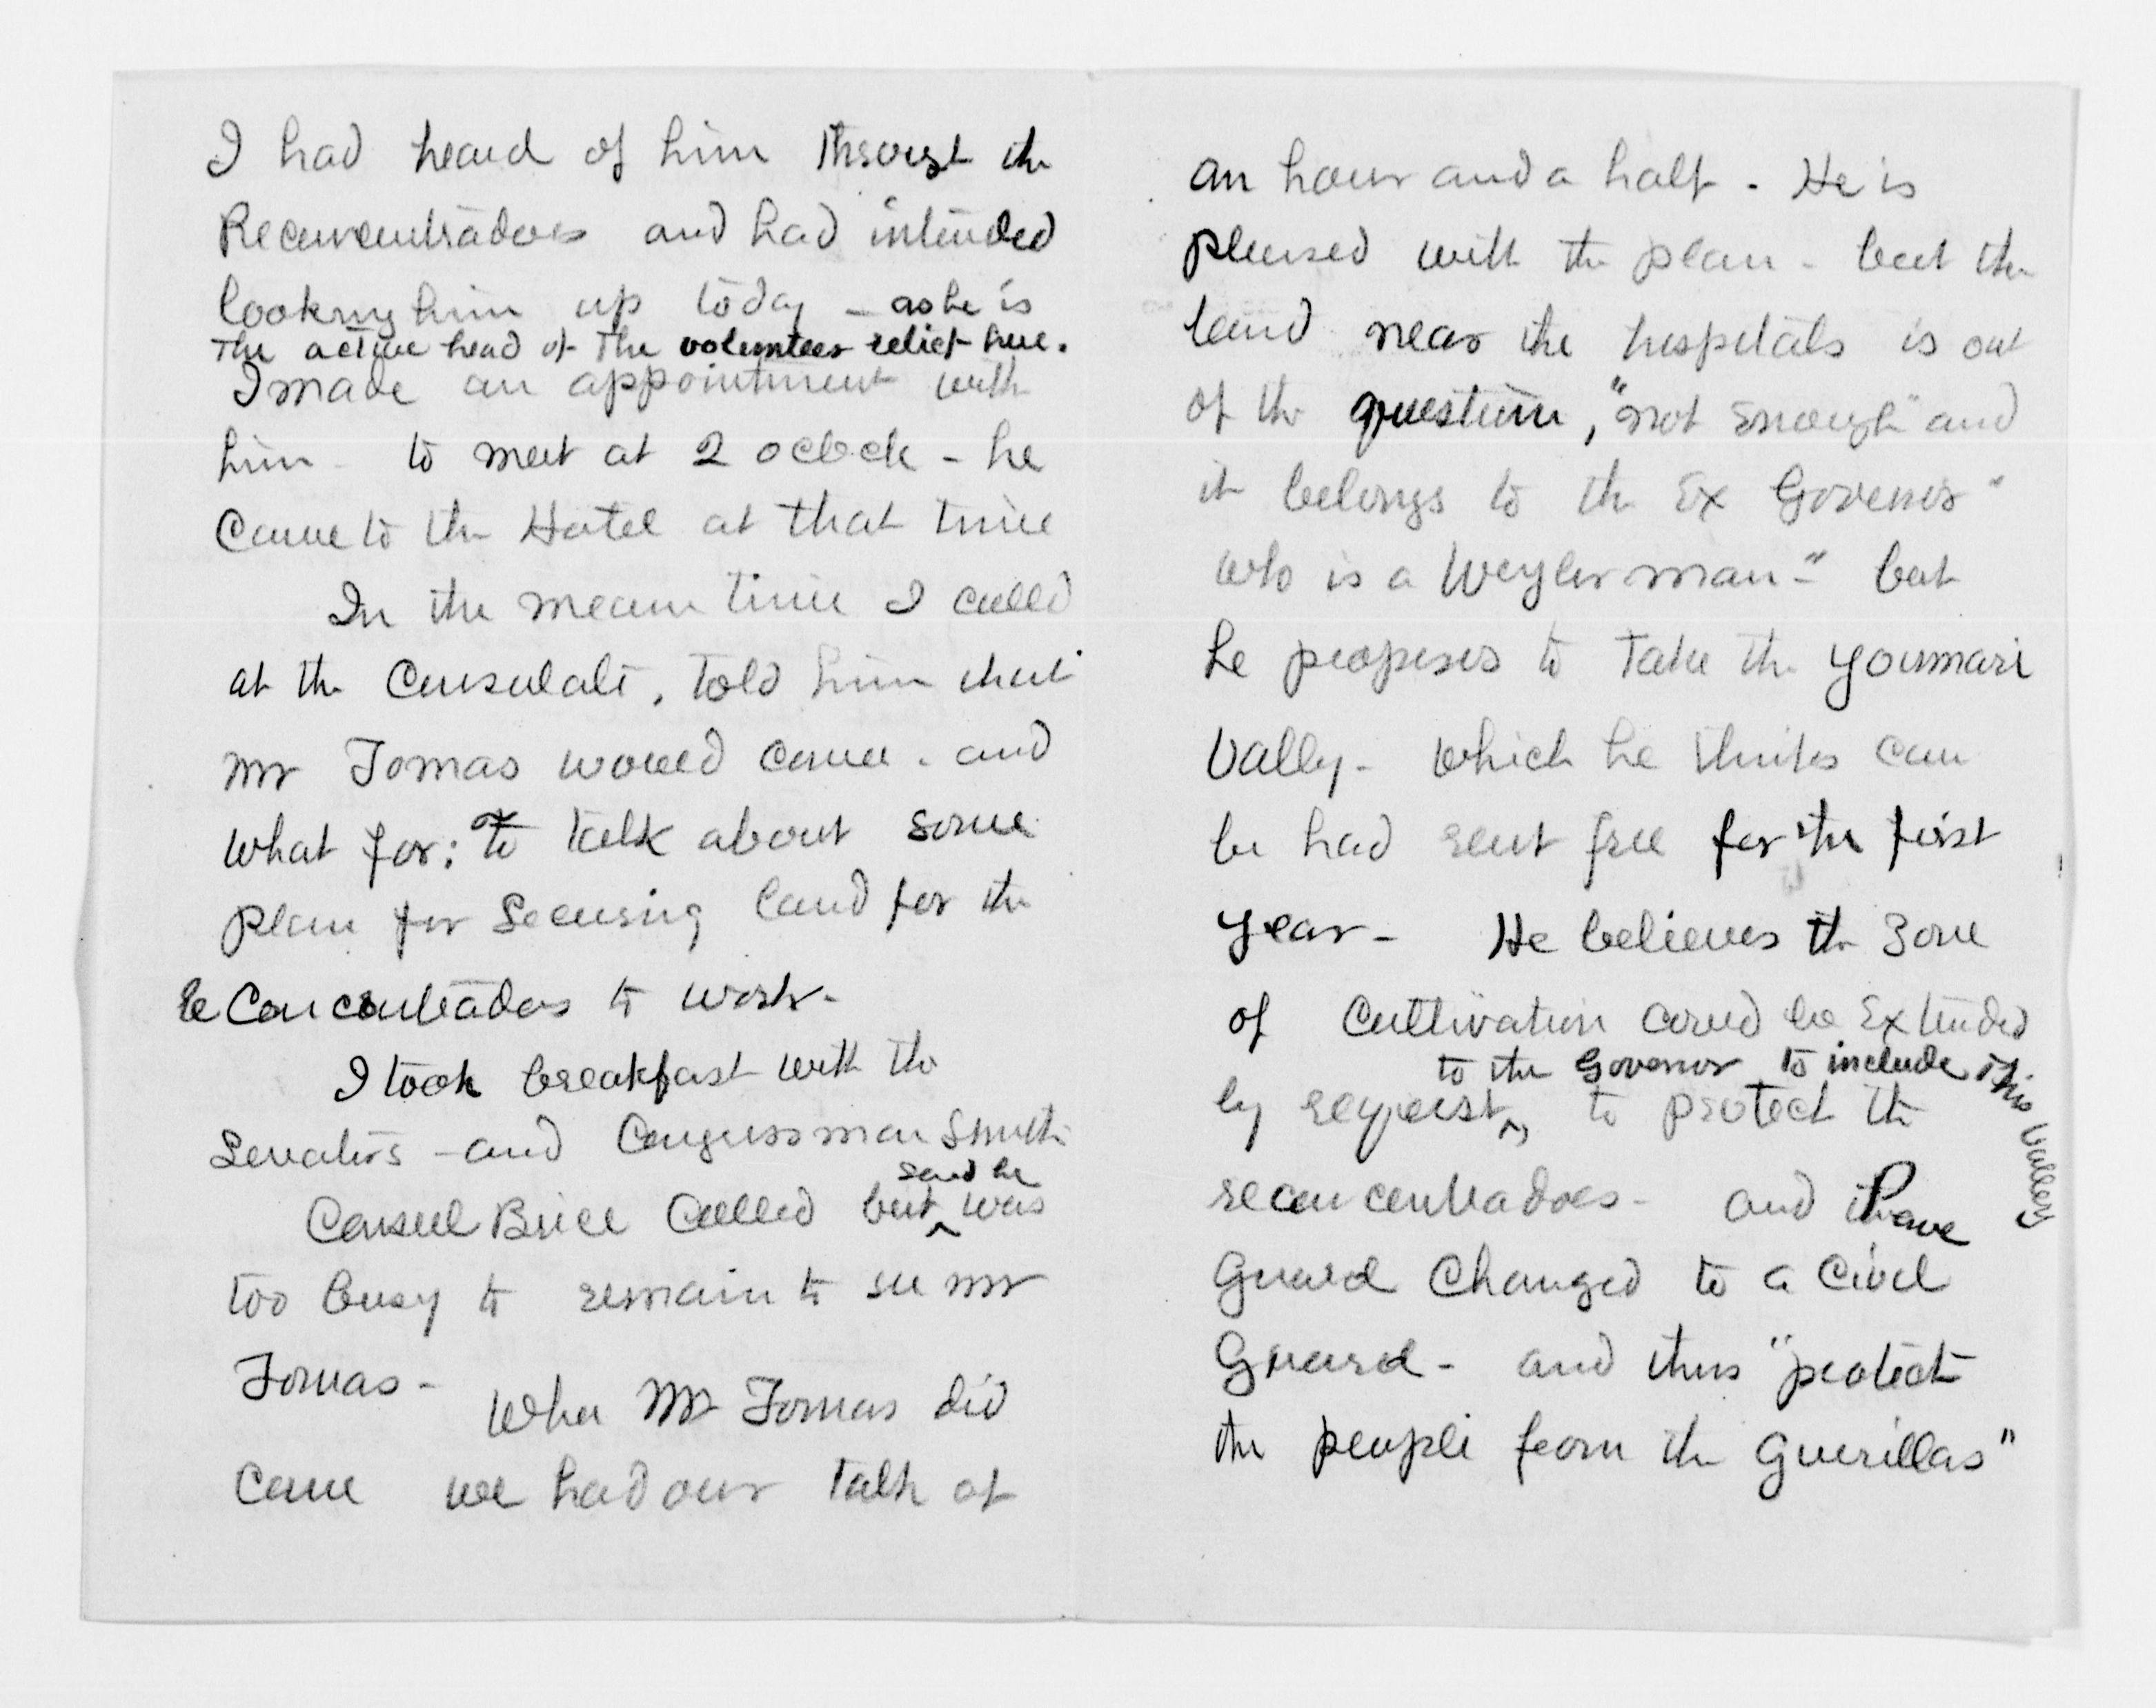 I had heard of him through the
Reconcentradoes and had intended
looking him up today - as he is
The active head of the volunteer relief here.
I made an appointment with
him - to meet at 2 oclock - he
Came to the Hotel at that time
In the mean time I called
at the Consulate, told him that
Mr Tomas would come - and
what for: to talk about some
plan for Securing land for the
reConcentrados to work -
I took breakfast with the
Senators - and Congressman Smith
said he
Consul Brice Called but ^ was
too busy to remain to see Mr
Tomas -
When Mr Tomas did
Come we had our talk of
an hour and a half - He is
pleased with the plan - but the
land near the hospitals is out
of the question, "not Enough" and
it belongs to the Ex Govenor"
who is a Weyler man -" but
he proposes to Take the Youmari
Vally - which he thinks can
be had rent free for the first
year - He believes the Zone
of Cultivation could be Extended
to the Govenor to include this Valley
by request ^ to protect the
reconcentradoes - and have
Guard Changed to a Civil
Guard - and thus "protect
the people from the Guerillas"